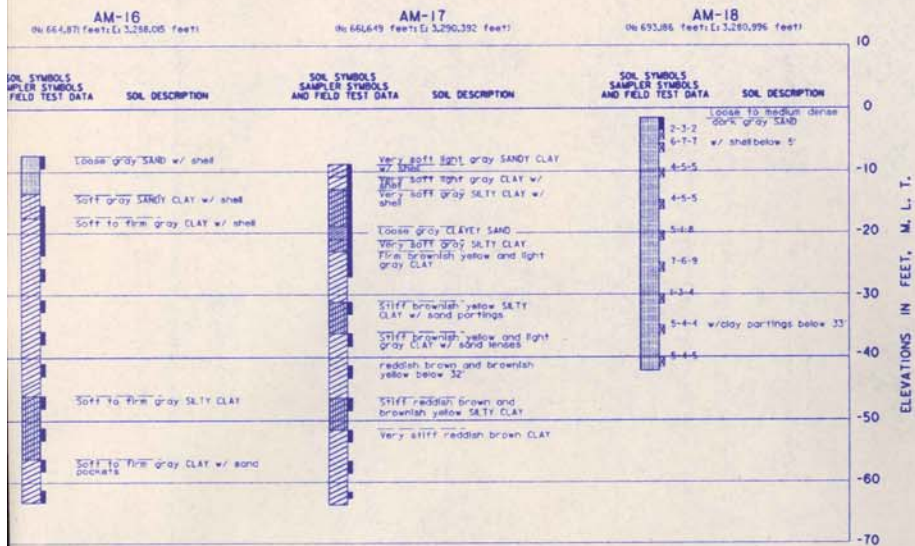 AM-16
(N: 664,871 feet; E: 3,288,015 feet)
SOIL SYMBOLS
SAMPLER SYMBOLS
FIELD TEST DATA
SOIL DESCRIPTION
Loose gray SAND w/ shell
Soft gray SANDY CLAY w/ shell
Soft to firm gray CLAY w/ shell
Soft to firm gray SILTY CLAY
Soft to firm gray CLAY w/ sand
pockets
AM-17
(N: 661,649 feet; E: 3,290,392 feet)
SOIL SYMBOLS
SAMPLER SYMBOLS
AND FIELD TEST DATA
SOIL DESCRIPTION
Very soft light gray SANDY CLAY
w/ shell
Very soft light gray CLAY w/
shell
Very soft gray SILTY CLAY w/
shell
Loose gray CLAYEY SAND
Very soft gray SILTY CLAY
Firm brownish yellow and light
gray CLAY
Stiff brownish yellow SILTY
CLAY w/ sand partings
Stiff brownish yellow and light
gray CLAY w/ sand lenses
reddish brown and brownish
yellow below 32'
Stiff reddish brown and
brownish yellow SILTY CLAY
Very stiff reddish brown CLAY
AM-18
(N: 693,186 feet; E: 3,280,996 feet)
SOIL SYMBOLS
SAMPLER SYMBOLS
AND FIELD TEST DATA
SOIL DESCRIPTION
Loose to medium dense
dark gray SAND
2-3-2
6-7-7 w/ shell below 5'
4-5-5
4-5-5
5-1-8
7-6-9
1-3-4
5-4-4 w/clay partings below 33'
5-4-5
10
0
-10
-20
-30
-40
-50
-60
-70
ELEVATIONS IN FEET, M. L. T.